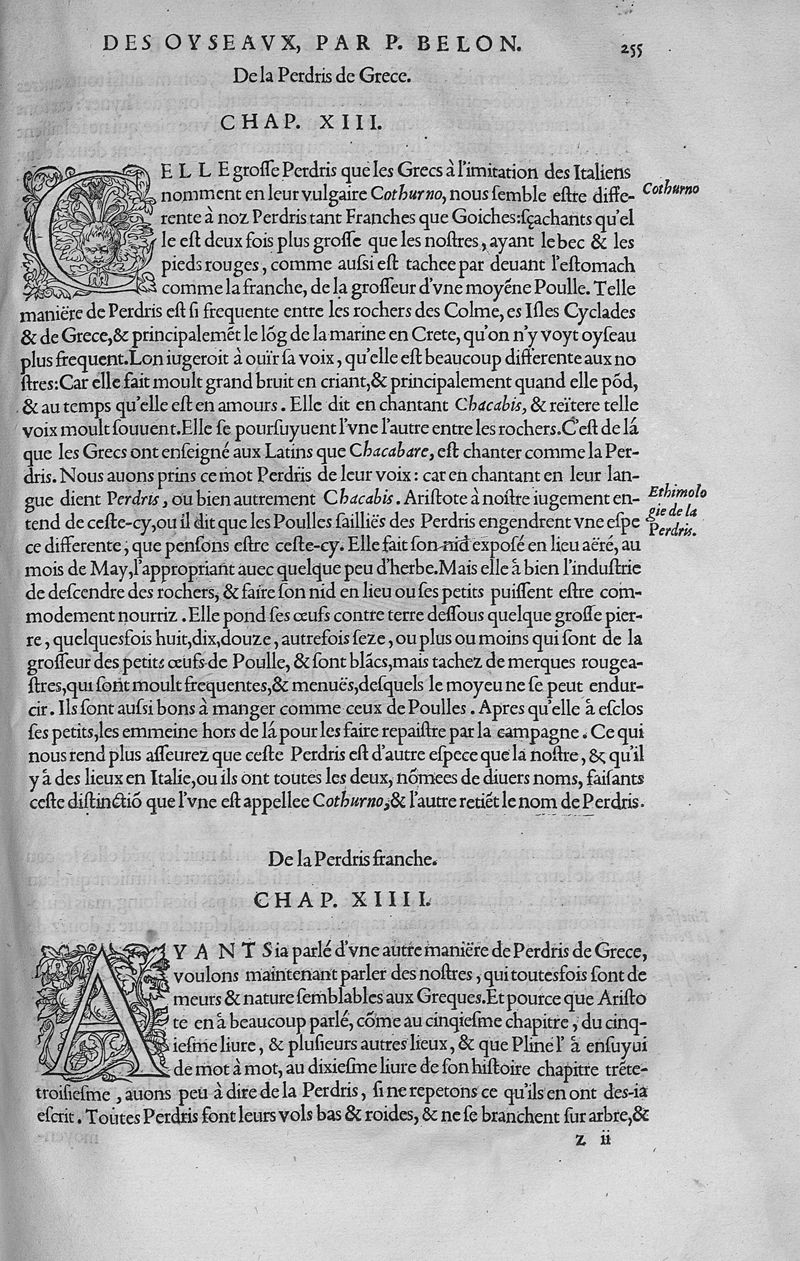 DES OYSEAVX, PAR P. BELON.
255
De la Perdris de Grece.
CHAP. XIII.
CELLE grosse Perdris que les Grecs à l'imitation des Italiens
nomment en leur vulgaire Cothurno, nous semble estre diffe-
Cothurno
rente à noz Perdris tant Franches que Goiches: sçachants qu'el
le est deux fois plus grosse que les nostres, ayant le bec & les
pieds rouges, comme aussi est tachee par deuant l'estomach
comme la franche, de la grosseur d'vne moyéne Poulle. Telle
maniëre de Perdris est si frequente entre les rochers des Colme, es Isles Cyclades
& de Grece, & principalemēt le lōg de la marine en Crete, qu'on n'y voyt oyseau
plus frequent. Lon iugeroit à ouïr sa voix, qu'elle est beaucoup differente aux no
stres: Car elle fait moult grand bruit en criant, & principalement quand elle pōd,
& au temps qu'elle est en amours. Elle dit en chantant Chacabis, & reïtere telle
voix moult souuent. Elle se poursuyuent l'vne l'autre entre les rochers. C'est de lá
que les Grecs ont enseigné aux Latins que Chacabare, est chanter comme la Per-
dris. Nous auons prins ce mot Perdris de leur voix: car en chantant en leur lan-
gue dient Perdris, ou bien autrement Chacabis. Aristote à nostre iugement en-
Ethimolo
gie de la
Perdris.
tend de ceste-cy, ou il dit que les Poulles sailliës des Perdris engendrent vne espe
ce differente, que pensons estre ceste-cy. Elle fait son nid exposé en lieu aëré, au
mois de May, l'appropriant auec quelque peu d'herbe. Mais elle à bien l'industrie
de descendre des rochers, & faire son nid en lieu ou ses petits puissent estre com-
modement nourriz. Elle pond ses œufs contre terre dessous quelque grosse pier-
re, quelquesfois huit, dix, douze, autrefois seze, ou plus ou moins qui sont de la
grosseur des petits œufs de Poulle, & sont blācs, mais tachez de merques rougea-
stres, qui sont moult frequentes, & menuës, desquels le moyeu ne se peut endur-
cir. Ils sont aussi bons à manger comme ceux de Poulles. Apres qu'elle à esclos
ses petits, les emmeine hors de lá pour les faire repaistre par la campagne. Ce qui
nous rend plus asseurez que ceste Perdris est d'autre espece que la nostre, & qu'il
y à des lieux en Italie, ou ils ont toutes les deux, nōmees de diuers noms, faisants
ceste distinctiō que l'vne est appellee Cothurno, & l'autre retiēt le nom de Perdris.
De la Perdris franche.
CHAP. XIIII.
AYANTS ia parlé d'vne autre maniëre de Perdris de Grece,
voulons maintenant parler des nostres, qui toutesfois sont de
meurs & nature semblables aux Greques. Et pource que Aristo
te en à beaucoup parlé, cōme au cinqiesme chapitre, du cinq-
iesme liure, & plusieurs autres lieux, & que Pline l' à ensuyui
de mot à mot, au dixiesme liure de son histoire chapitre trēte-
troisiesme, auons peu à dire de la Perdris, si ne repetons ce qu'ils en ont des-ia
escrit. Toutes Perdris font leurs vols bas & roides, & ne se branchent sur arbre, &
z ii